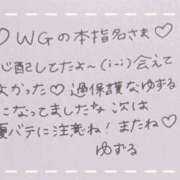 ♡WGの本指名さま♡
心配してたよ〜(i-i)会えて
よかった♡過保護なゆずる
になってましたな 次は
夏バテに注意ね！またね♡
ゆずる